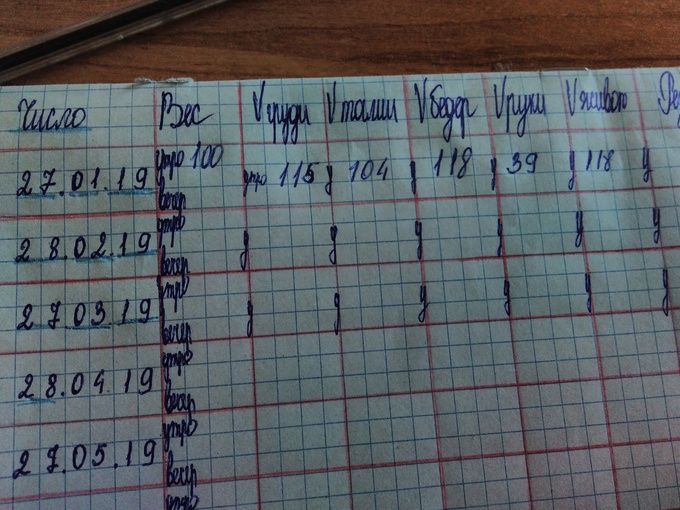 Число Вес V груди V талии V бедер V руки V живот Рез
27.01.19 утро 100 утро 115 у 104 у 118 у 39 у 118 у
вечер
28.02.19 утро у у у у у у
вечер
27.03.19 утро у у у у у у
вечер
28.04.19 утро
вечер
27.05.19 утро
вечер
утро